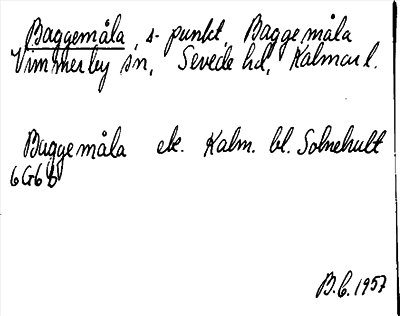 Baggemåla, s. punkt, Baggemåla
Vimmerby sn, Sevede hd, Kalmar l.
Baggemåla ek. Kalm. bl. Solnehult
6G6b
B.C. 1957